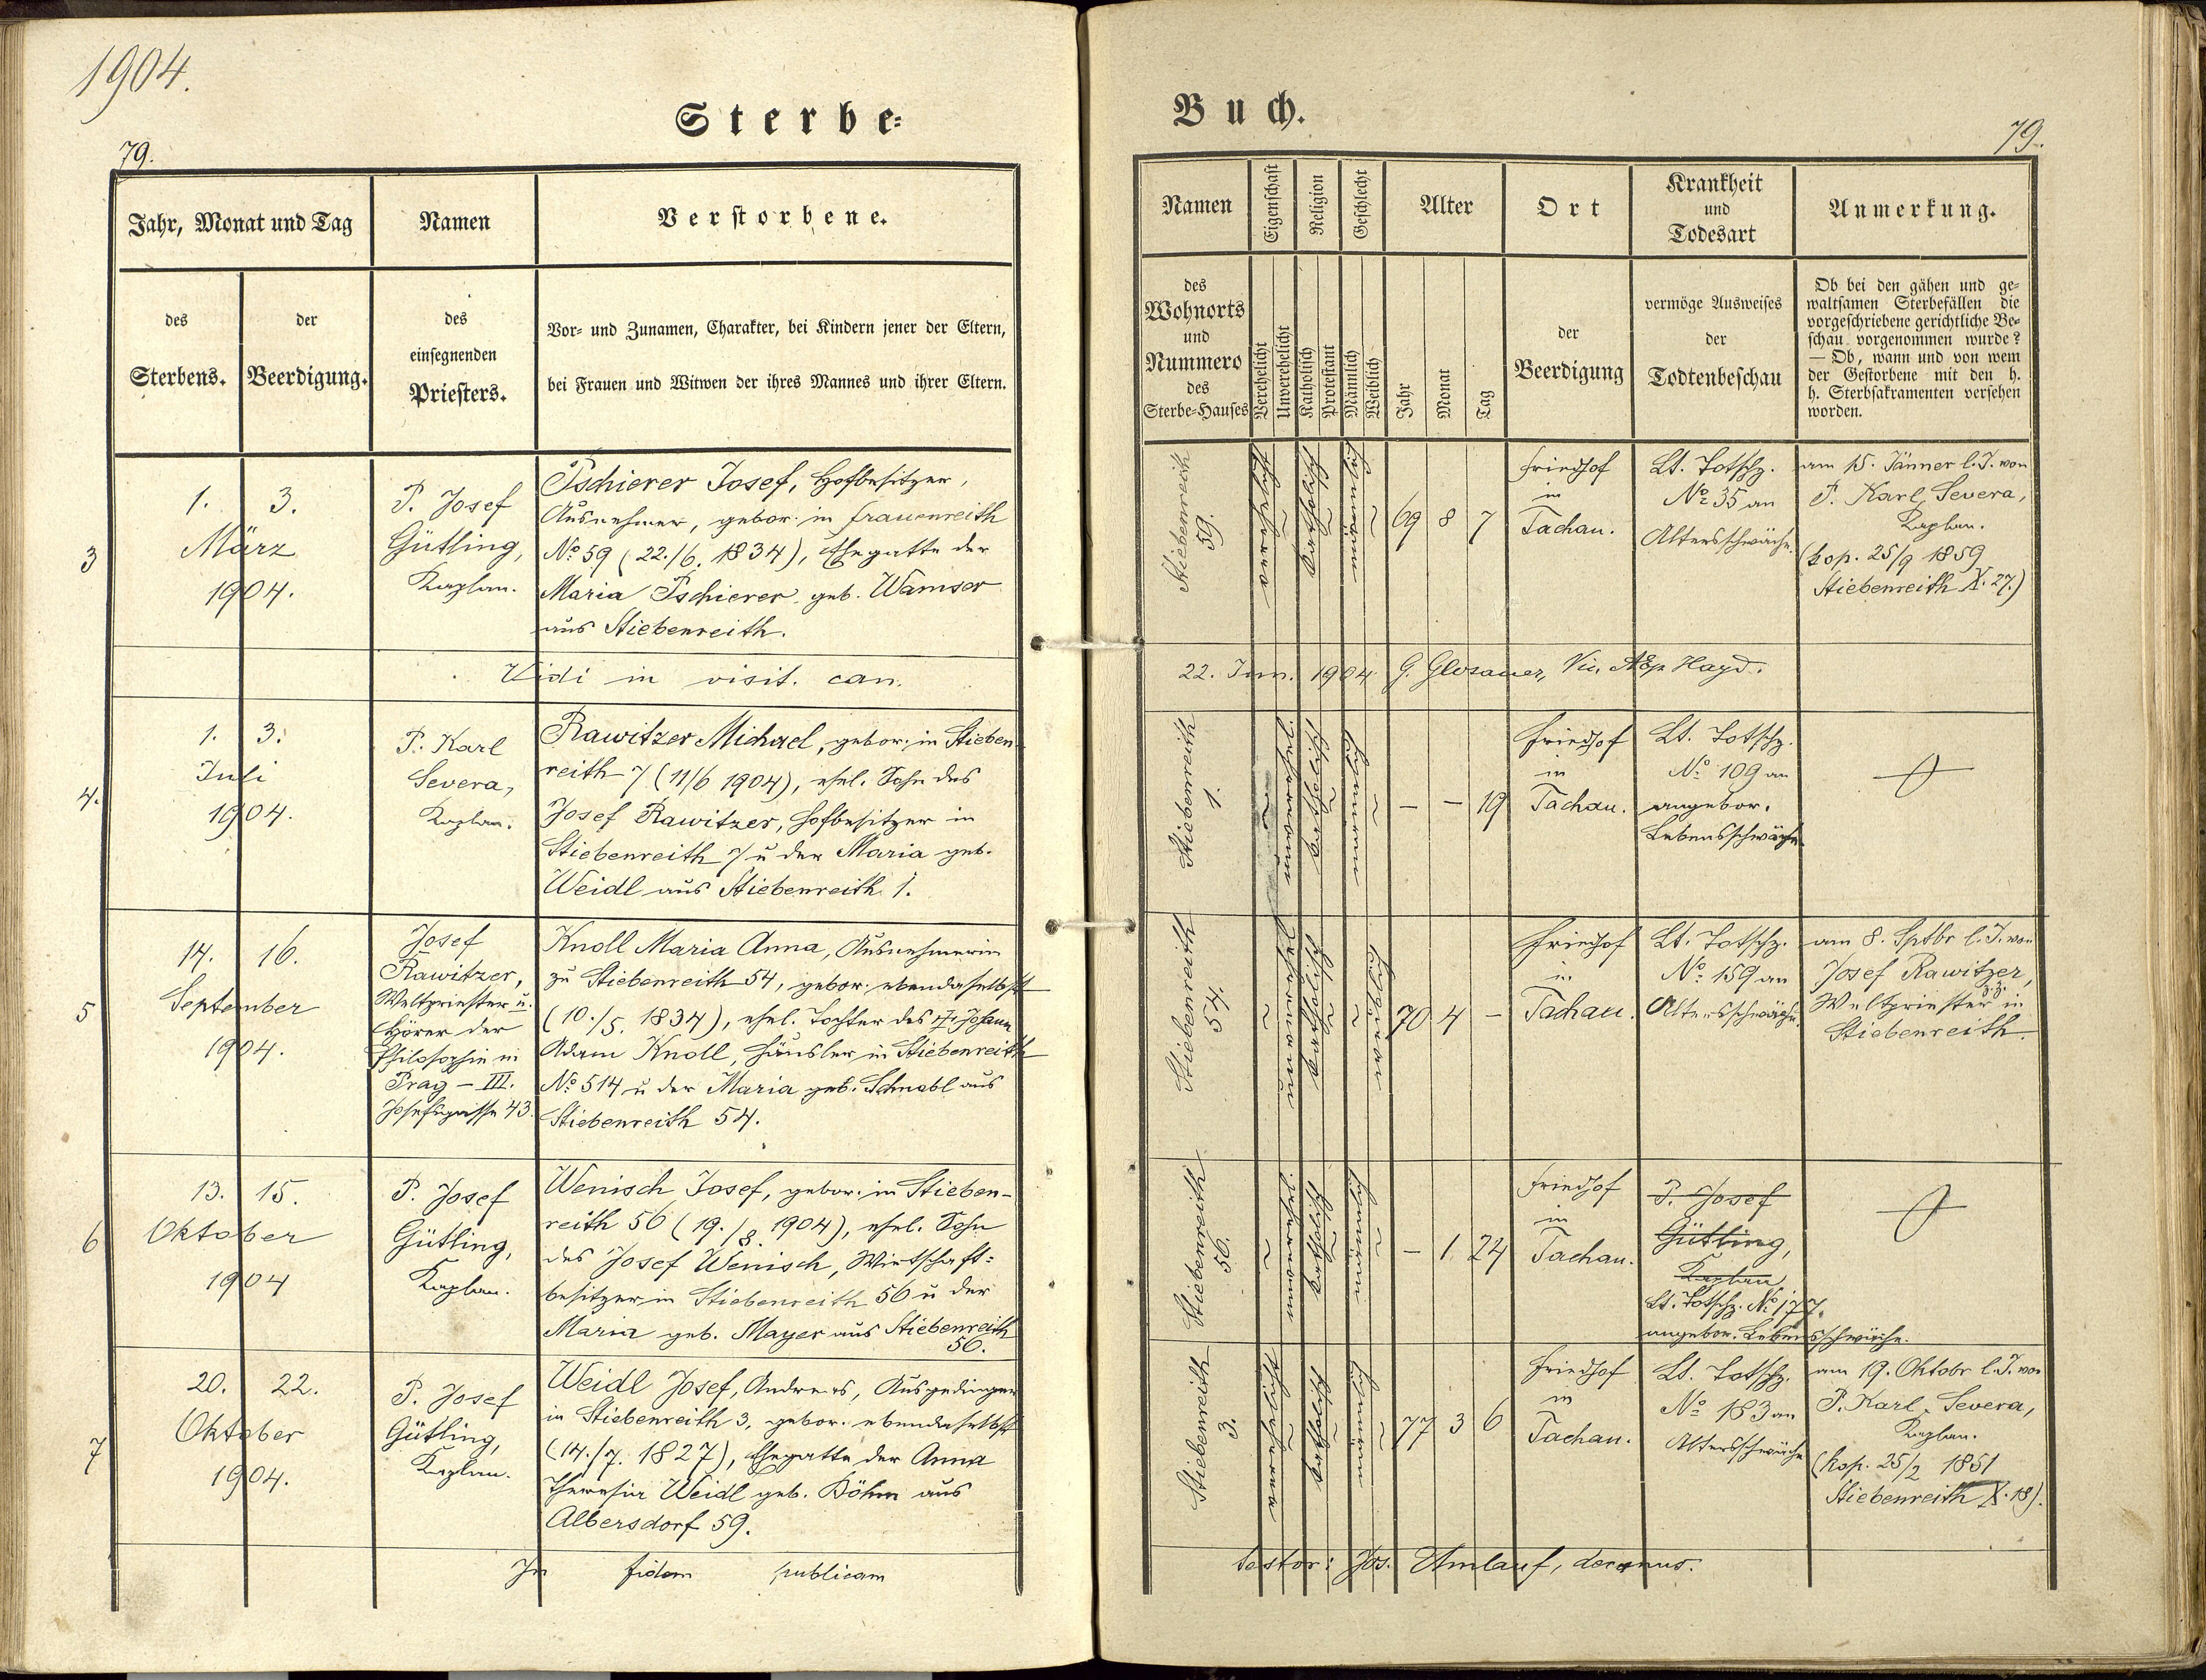 1904.
Sterbe-
79.
Jahr, Monat und Tag
Namen
Verstorbene.
des
Sterbens.
der
Beerdigung.
des
einsegnenden
Priesters.
Vor- und Zunamen, Charakter, bei Kindern jener der Eltern,
bei Frauen und Witwen der ihres Mannes und ihrer Eltern.
3
1. 3.
März
1904.
P. Josef
Gütling,
Kaplan.
Tschierer Josef, Hofbesitzer,
Ausnehmer, gebor. in Frauenreith
No 59 (22./6. 1834), Ehegatte der
Maria Tschierer geb. Wamser
aus Stiebenreith.
Vidi in visit. can.
4.
1. 3.
Juli
1904.
P. Karl
Severa,
Kaplan.
Rawitzer Michael, gebor. in Stieben-
reith 7 (11/6 1904), ehel. Sohn des
Josef Rawitzer, Hofbesitzer in
Stiebenreith 7 u der Maria geb.
Weidl aus Stiebenreith 1.
5
14. 16.
September
1904.
Josef
Rawitzer,
Weltpriester u.
Hörer der
Philosophie in
Prag – III.
Josefsgasse 43.
Knoll Maria Anna, Ausnehmerin
zu Stiebenreith 54, gebor. ebendaselbst
(10./5. 1834), ehel. Tochter des † Johann
Adam Knoll, Häusler in Stiebenreith
No 514 u der Maria geb. Schnabl aus
Stiebenreith 54.
6
13. 15.
Oktober
1904
P. Josef
Gütling,
Kaplan.
Wenisch Josef, gebor. in Stieben-
reith 56 (19./8. 1904), ehel. Sohn
des Josef Wenisch, Wirtschaft-
besitzer in Stiebenreith 56 u der
Maria geb. Mayer aus Stiebenreith
56.
7
20. 22.
Oktober
1904.
P. Josef
Gütling,
Kaplan.
Weidl Josef, Andreas, Ausgedinger
in Stiebenreith 3, gebor. ebendaselbst
(14./7. 1827), Ehegatte der Anna
Theresia Weidl geb. Böhm aus
Albersdorf 59.
In fidem publicam
Buch.
79.
Namen
Eigenschaft
Religion
Geschlecht
Alter
Ort
Krankheit
und
Todesart
Anmerkung.
des
Wohnorts
und
Nummero
des
Sterbe-Hauses
Verehelicht
Unverehelicht
Katholisch
Protestant
Männlich
Weiblich
Jahr
Monat
Tag
der
Beerdigung
vermöge Ausweises
der
Todtenbeschau
Ob bei den gähen und ge-
waltsamen Sterbefällen die
vorgeschriebene gerichtliche Be-
schau vorgenommen wurde?
— Ob, wann und von wem
der Gestorbene mit den h.
h. Sterbsakramenten versehen
worden.
Stiebenreith
59.
verehelicht
katholisch
männlich
69 8 7
Friedhof
in
Tachau.
Lt. Totschz.
No 35 an
Altersschwäche.
am 15. Jänner l. J. von
P. Karl Severa,
Kaplan.
(kop. 25/9 1859
Stiebenreith X. 27.)
22. Jun. 1904 G. Glosauer, Vic. AEp. Hayd.
Stiebenreith
1.
unverehel.
katholisch
männlich
– – 19
Friedhof
in
Tachau.
Lt. Totschz.
No 109 an
angebor.
Lebensschwäche
Stiebenreith
54.
unverehel.
katholisch
weiblich
70 4 –
Friedhof
in
Tachau.
Lt. Totschz.
No 159 an
Altersschwäche.
am 8. Sptbr l. J. von
Josef Rawitzer,
Weltpriester z. Z. in
Stiebenreith.
Stiebenreith
56.
unverehel.
katholisch
männlich
– 1. 24
Friedhof
in
Tachau.
P. Josef
Gütling,
Kaplan
Lt. Totschz. No 177.
angebor. Lebensschwäche.
Stiebenreith
3.
verehelicht
katholisch
männlich
77 3 6
Friedhof
in
Tachau.
Lt. Totschz.
No 183 an
Altersschwäche
am 19. Oktobr l. J. von
P. Karl Severa,
Kaplan.
(kop. 25/2 1851
Stiebenreith X. 18).
testor: Jos. Umlauf, decanus.